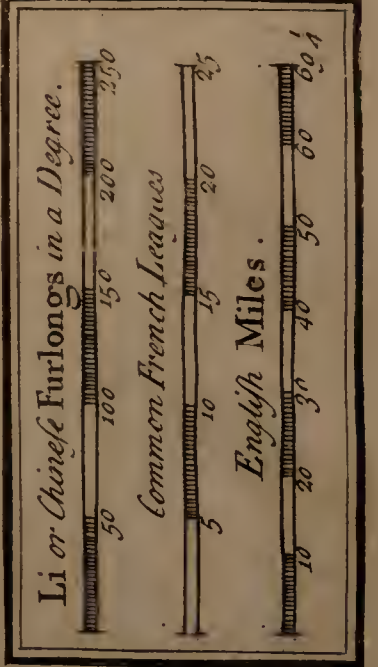 Li or Chineſe Furlongs in a Degree.
50 100 150 200 250
Common French Leagues
5 10 15 20 25
Engliſh Miles.
10 20 30 40 50 60